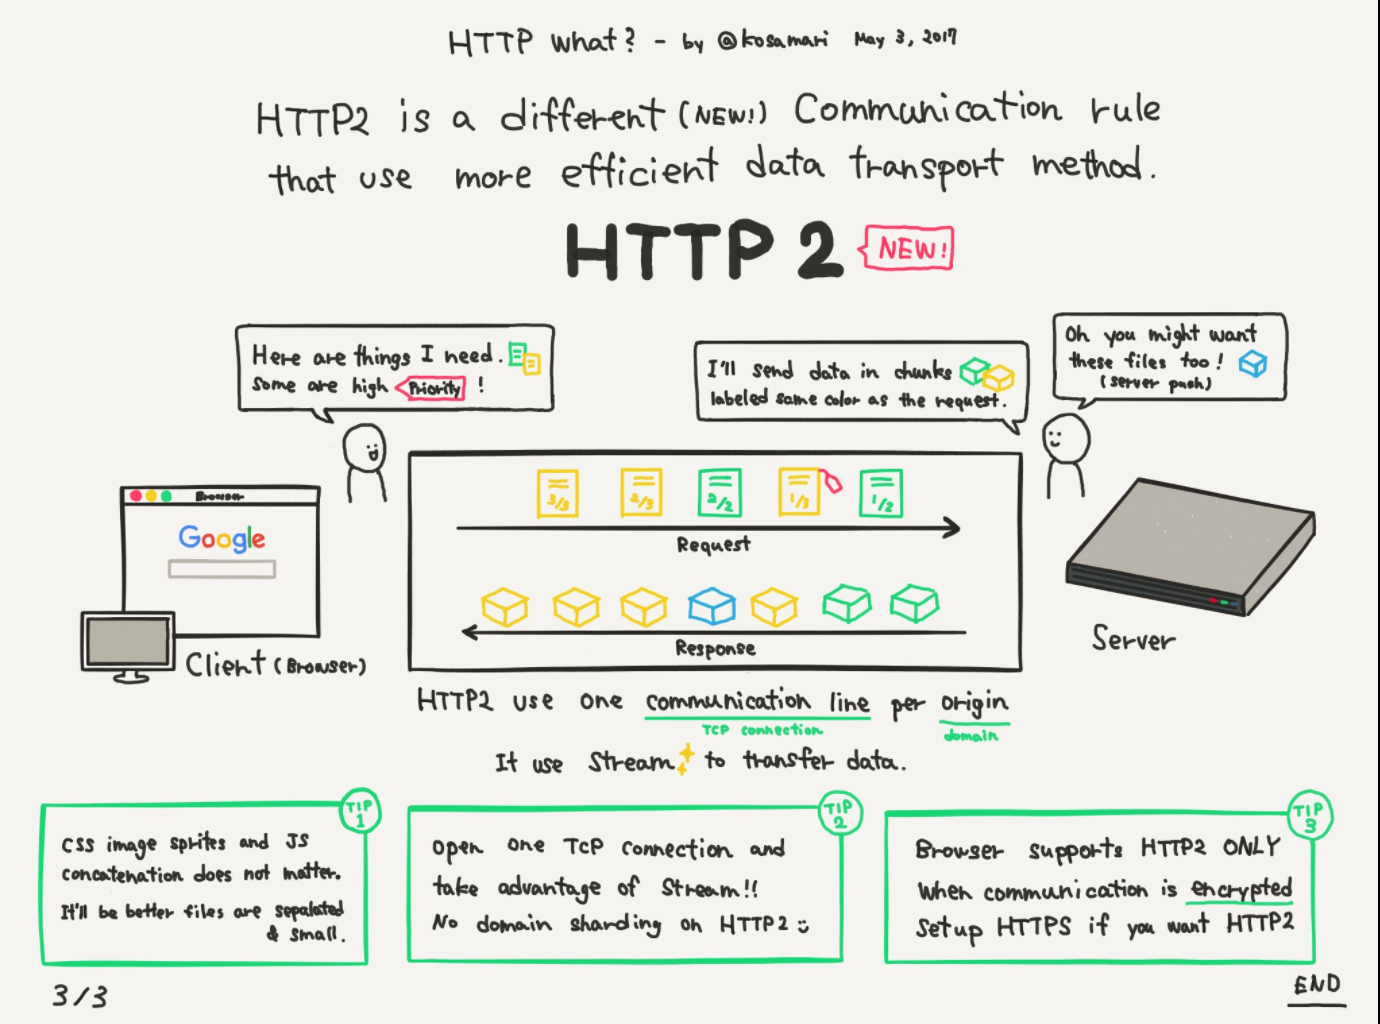 HTTP what? - by @kosamari May 3, 2017
HTTP2 is a different (NEW!) Communication rule
that use more efficient data transport method.
HTTP 2
NEW!
Here are things I need.
Some are high Priority !
I'll send data in chunks
labeled same color as the request.
Oh you might want
these files too!
(server push)
Browser
Google
3/3
2/3
2/2
1/3
1/2
Request
Response
Client (Browser)
Server
HTTP2 use one communication line per origin
TCP connection
domain
It use Stream to transfer data.
TIP
1
CSS image sprites and JS
concatenation does not matter.
It'll be better files are sepalated
& small.
TIP
2
Open one TCP connection and
take advantage of Stream!!
No domain sharding on HTTP2
TIP
3
Browser supports HTTP2 ONLY
When communication is encrypted
Setup HTTPS if you want HTTP2
3/3
END